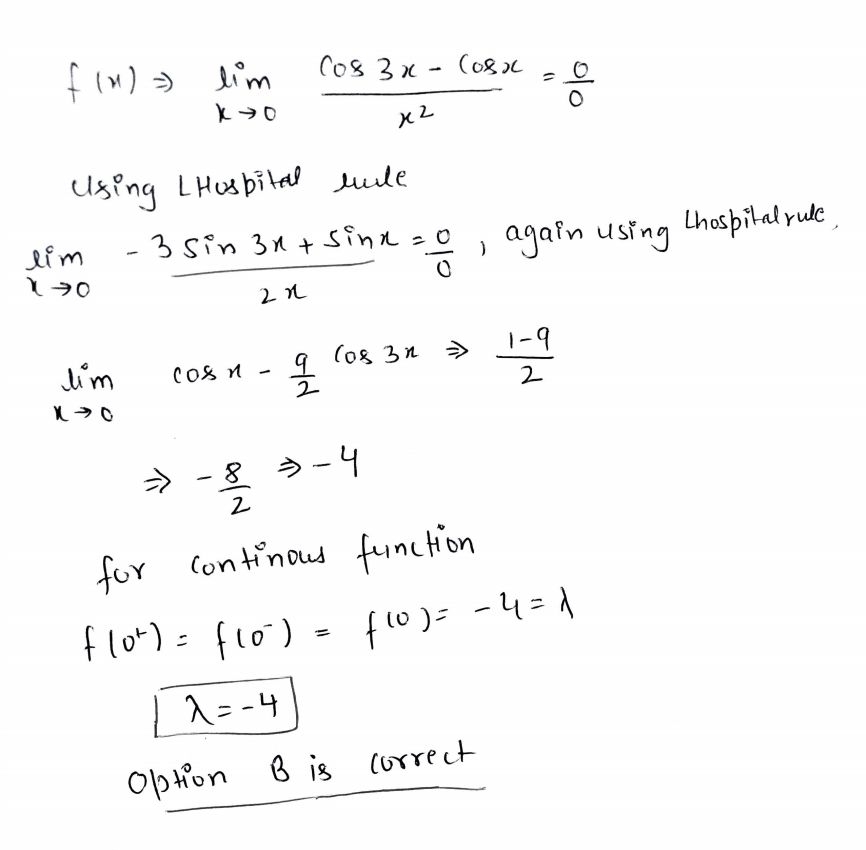 f(x) ⇒ lim x→0 (Cos 3x - Cosx)/x2 = 0/0
Using LHospital rule
lim x→0 (-3 Sin 3x + Sinx)/2x = 0/0, again using Lhospital rule,
lim x→0 cos x - 9/2 Cos 3x ⇒ (1-9)/2
⇒ -8/2 ⇒ -4
for Continous function
f(0+) = f(0-) = f(0) = -4 = λ
λ = -4
Option B is correct